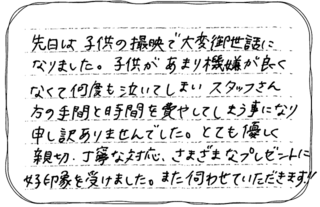 先日は子供の撮映で大変御世話に
なりました。子供があまり機嫌が良く
なくて何度も泣いてしまいスタッフさん
方の手間と時間を費やしてしまう事になり
申し訳ありませんでした。とても優しく
親切、丁寧な対応、さまざまなプレゼントに
好印象を受けました。また伺わせていただきます!!